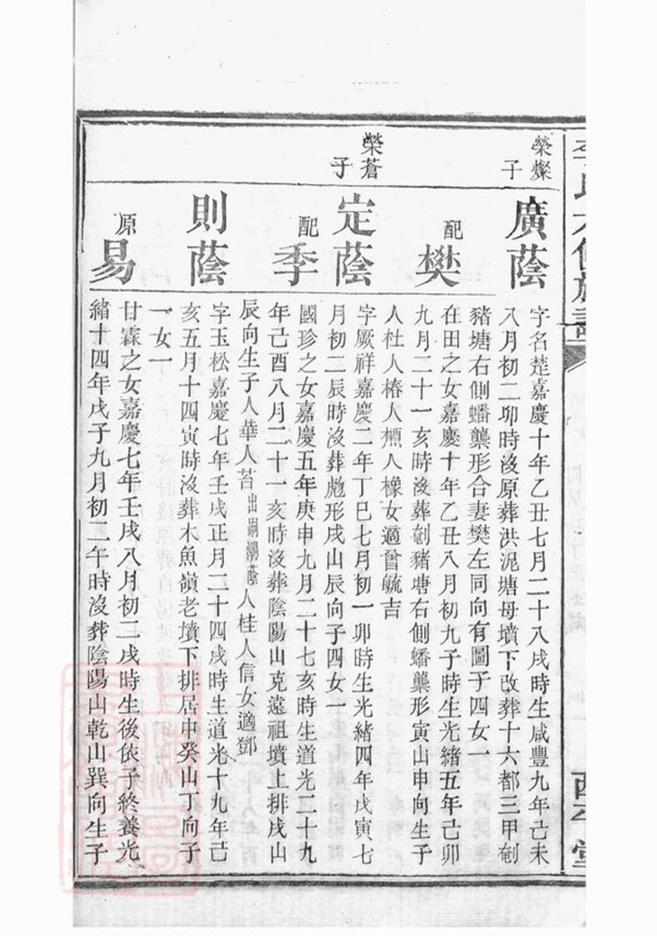 榮燦子
廣蔭
字名楚嘉慶十年乙丑七月二十八戌時生咸豐九年己未
八月初二卯時沒原葬洪泥塘母墳下改葬十六都三甲刨
豬塘右側蟠龍形合妻樊左同向有圖子四女一
配樊
在田之女嘉慶十年乙丑八月初九子時生光緒五年己卯
九月二十一亥時沒葬刨豬塘右側蟠龍形寅山申向生子
人杜人椿人櫃人橡女適曾毓吉
榮蒼子
定蔭
字厥祥嘉慶二年丁巳七月初一卯時生光緒四年戊寅七
月初二辰時沒葬彪形戌山辰向子四女一
配季
國珍之女嘉慶五年庚申九月二十七亥時生道光二十九
年己酉八月二十一亥時沒葬陰陽山克遠祖墳上排戌山
辰向生子人華人苔出嗣潮蔭人桂人信女適鄧
則蔭
字玉松嘉慶七年壬戌正月二十四戌時生道光十九年己
亥五月十四寅時沒葬木魚嶺老墳下排居中癸山丁向子
一女一
原易
甘霖之女嘉慶七年壬戌八月初二戌時生後依子終養光
緒十四年戊子九月初二午時沒葬陰陽山乾山巽向生子